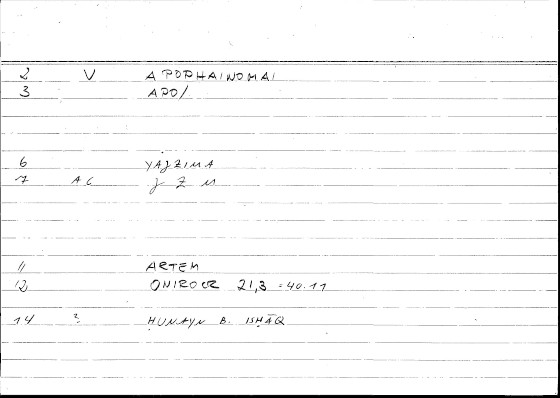 2 V APOPHAINOMAI
3 APO/
6 YAJZIMA
7 AC J Z M
11 ARTEM
12 ONIROCR 21,3 = 40.11
14 ? ḤUNAYN B. ISḤĀQ